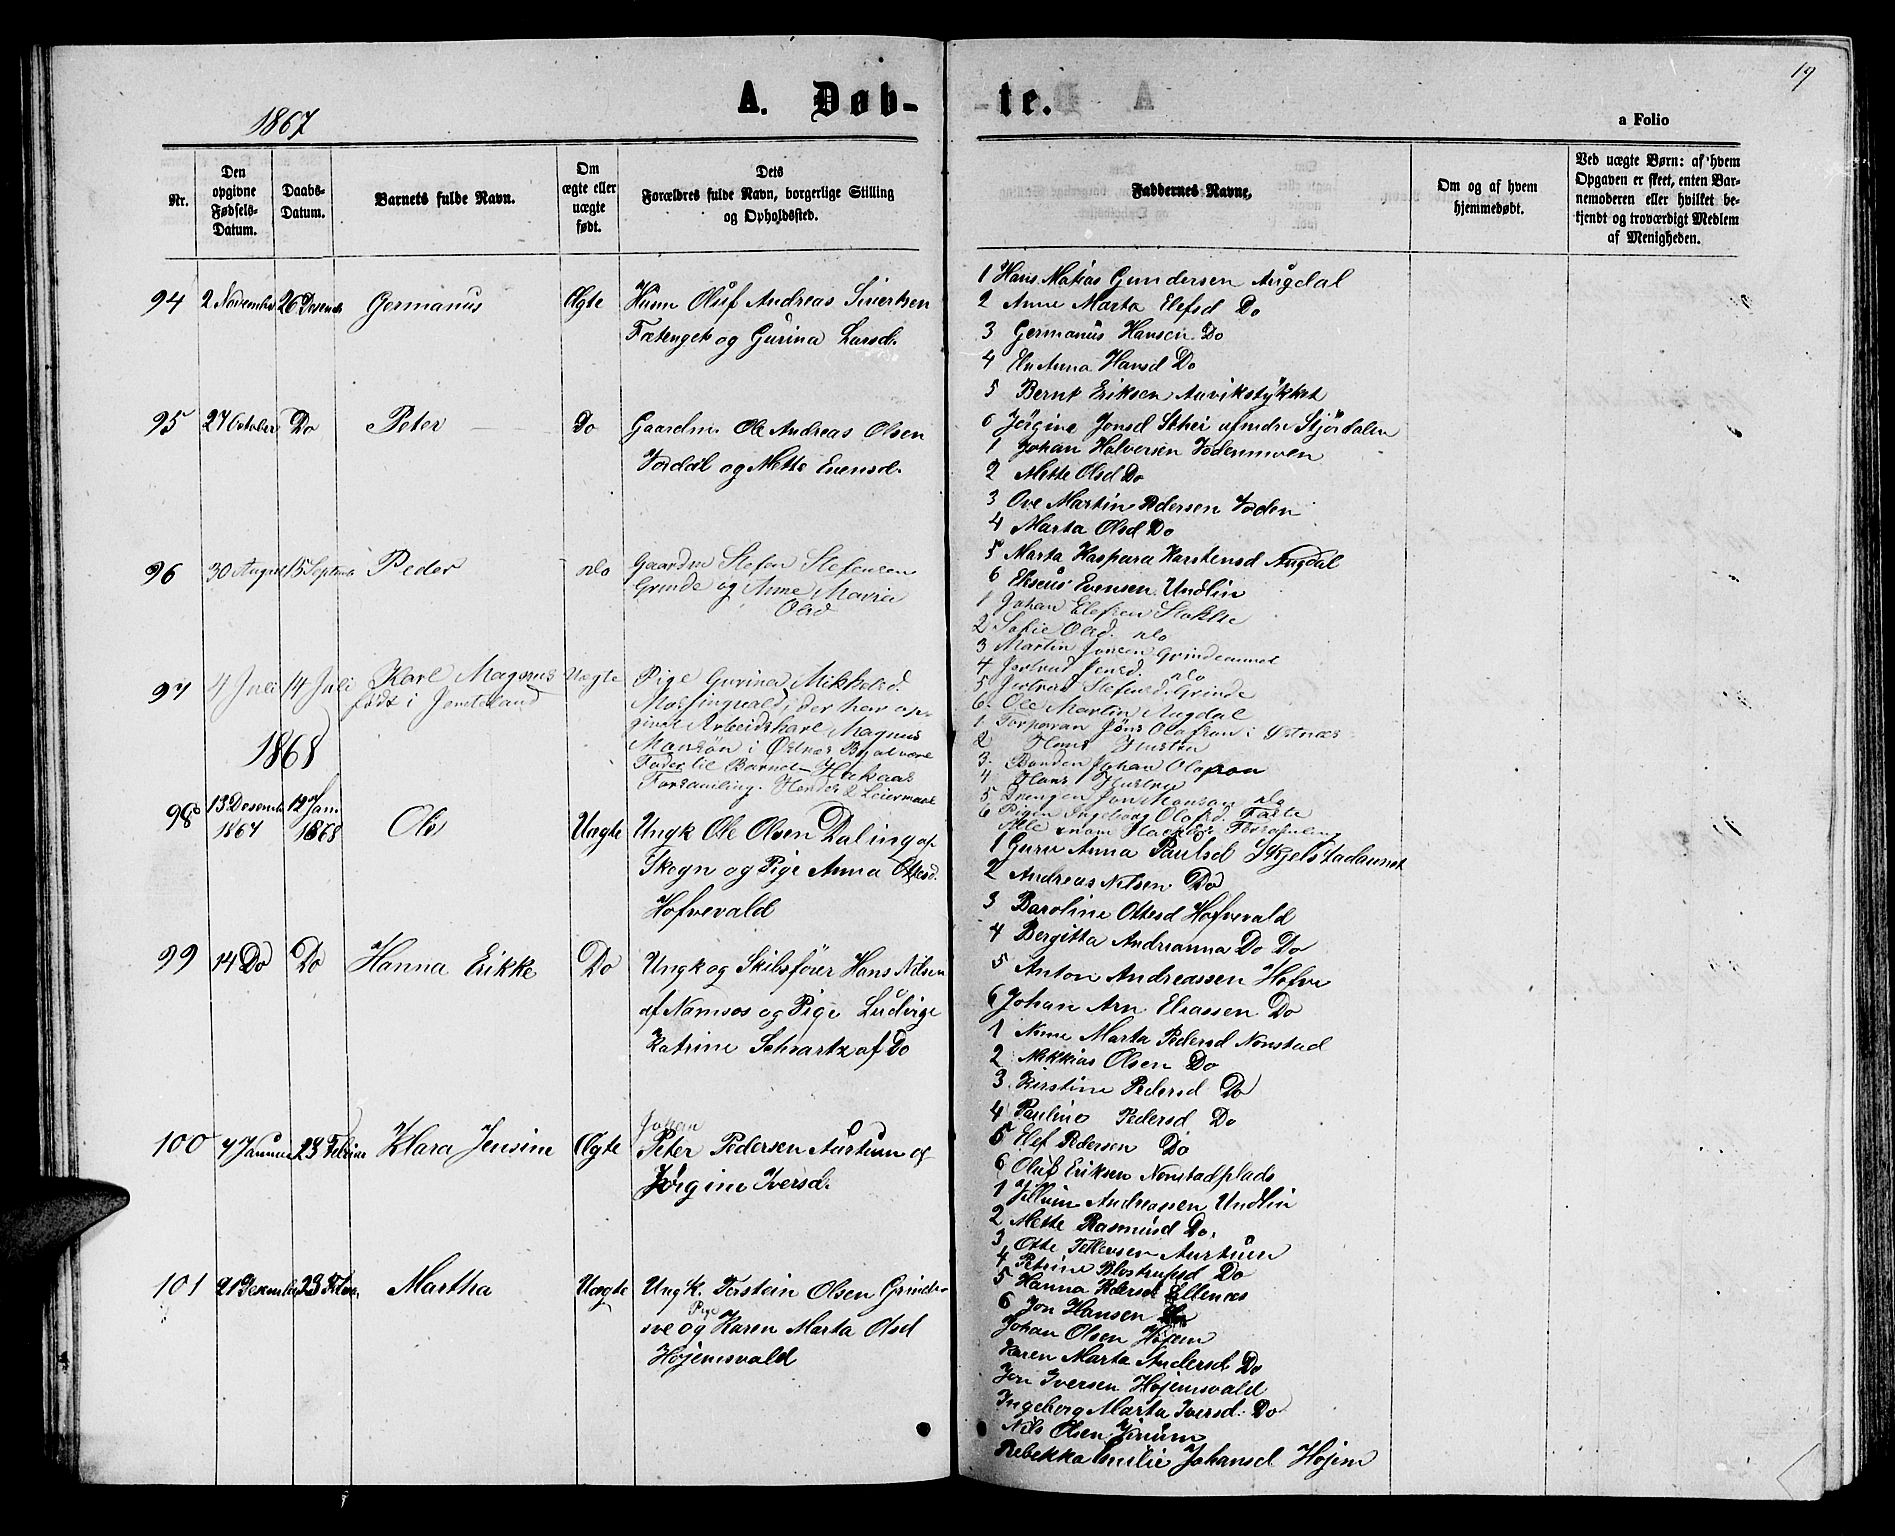 19
A. Døb-
te.
1867
a Folio
Nr.
Den opgivne Fødsels-Datum.
Daabs-Datum.
Barnets fulde Navn.
Om ægte eller uægte født.
Dets Forældres fulde Navn, borgerlige Stilling og Opholdssted.
Faddernes Navne.
Om og af hvem hjemmedøbt.
Ved uægte Børn: af hvem Opgaven er skeet, enten Barnemoderen eller hvilket bekjendt og troværdigt Medlem af Menigheden.
94 2 November 26 Desemb Germanus Ægte Husm Oluf Andreas Sivertsen
og Gurina Larsd.
1 Hans Matias Gundersen Augdal
2 Anne Marta Elefsd Do
3 Germanus Hansen Do
4 Anna Hansd Do
5 Bernt Eriksen
6 Jørgine Jonsd af nedre Stjørdalen
95 27 October Do Peter Do Gaardm Ole Andreas Olsen
Vordal og Mette Evensd.
1 Johan Halversen Vodenmoen
2 Mette Olsd Do
3 Ove Martin Pedersen Voden
4 Marta Olsd Do
5 Marta Kaspara Karstensd Augdal
6 Evensen Undlin
96 30 August 15 Septemb Peder do Gaardm Stefen Stefensen
Grinde og Anne Maria
Olsd
1 Johan Elefsen Stokke
2 Sofie Olsd. do
3 Martin Jonsen Grindeaunet
4 Jertrud Jensd. do
5 Jertrud Stefensd. Grinde
6. Ole Martin Augdal
97 4 Juli 14 Juli Karl Magnus Uægte Pige Gurina Mikkelsd.
født i Jemteland
Mossingvald, der har op-
givet Arbeidskarl Magnus
Mansøn i Østnæs By at være
Fader til Barnet – Hakaas
Forsamling. Hendes 2 Leiermaal
1. Torparen Jöns Olafson i Östnæs
2 Hans Hustru
3. Bonden Johan Olofson
4 Hans Hustru
5 Drengen Jon Monson do
6 Pigen Ingeborg Olofsd.
Alle Forsamling
1868
98 13 Desemb 1867 12 Jan 1868 Ole Uægte Ungk Ole Olsen Daling af
Skogn og Pige Anna Ottesd.
Hofvevald
1 Guru Anna Paulsd Skjelstadaunet
2 Andreas Nilsen Do
3 Baroline Ottesd Hofvevald
4 Bergitta Andrianna Do Do
5 Anton Andreassen Hofve
6 Johan Arn Eliassen Do
99 14 Do Do Hanna Erikke Do Ungk og Skibsfører Hans Nilsen
af Namsos og Pige Ludvige
Katrine Schvartz af Do
1 Anne Marta Pedersd Nonstad
2 Mekkias Olsen Do
3 Kirstine Pedersd Do
4 Pauline Pedersd Do
5 Elef Pedersen Do
6 Oluf Eriksen Nonstadplads
100 7 Januar 23 Febriar Klara Jensine Ægte Johan
Peter Pedersen Aurtun og
Jørgine Iversd.
1 Andreassen Undlin
2 Mette Rasmusd Do.
3 Otte Tellevsen Aurtun
4 Petrine Do
5 Hanna Pedersd Ellenæs
6 Jon Hansen
101 21 Desember 23 Febr. Martha Uægte Ungk. Torstein Olsen Grinde-
sve og Pige Karen Marta Olsd
Højemsvald
Johan Olsen Højem
Karen Marta Andersd Do
Jon Iversen Højemsvald
Ingeborg Marta Iversd. Do
Nils Olsen
Rebekka Emilie Johansd Højem